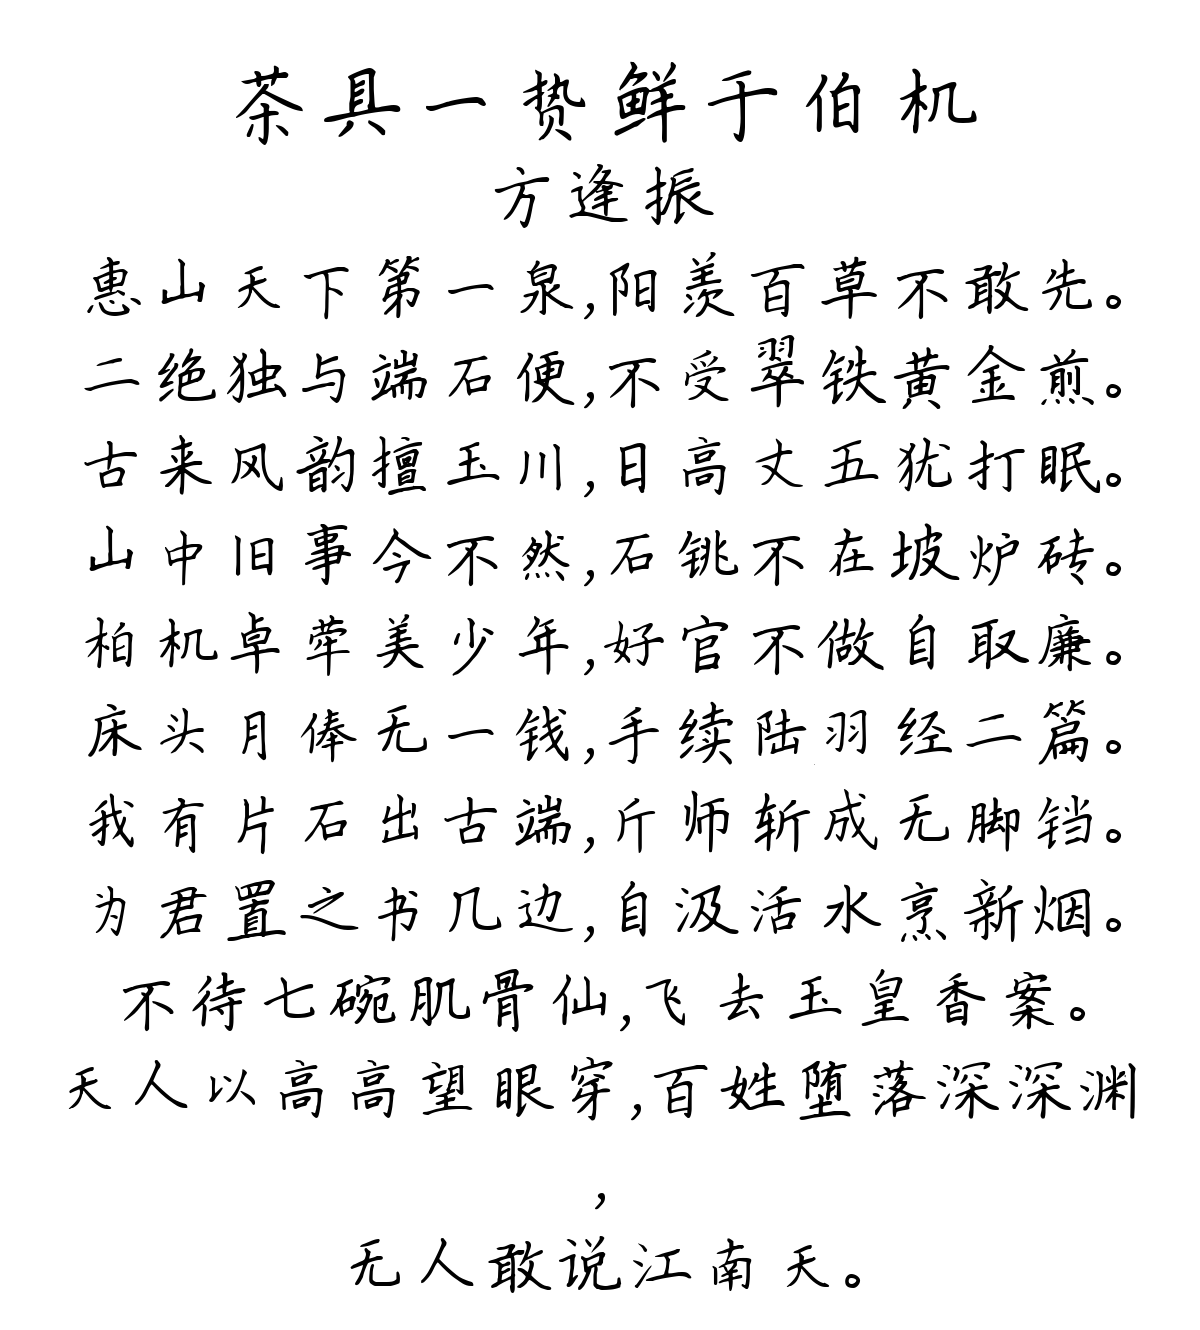 茶具一贽鲜于伯机
方逢振
惠山天下第一泉,阳羡百草不敢先。
二绝独与端石便,不受翠铁黄金煎。
古来风韵擅玉川,日高丈五犹打眠。
山中旧事今不然,石铫不在坡炉砖。
柏机卓荦美少年,好官不做自取廉。
床头月俸无一钱,手续陆羽经二篇。
我有片石出古端,斤师斩成无脚铛。
为君置之书几边,自汲活水烹新烟。
不待七碗肌骨仙,飞去玉皇香案。
天人以高高望眼穿,百姓堕落深深渊
,
无人敢说江南天。